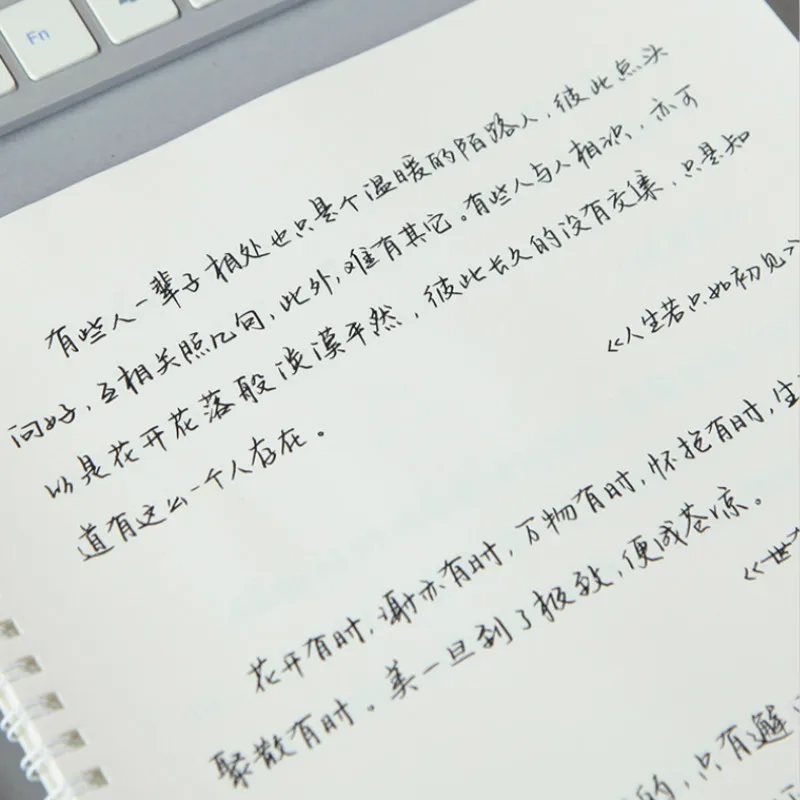 Fn
有些人一辈子相处也只是个温暖的陌路人,彼此点头
问好,互相关照几句,此外,难有其它。有些人与人相识,亦可
以是花开花落般淡漠平然,彼此长久的没有交集,只是知
道有这么一个人存在。
《人生若只如初见》
花开有时,谢亦有时,万物有时,怀抱有时,生
聚散有时。美一旦到了极致,便成苍凉。
《世
的,只有邂